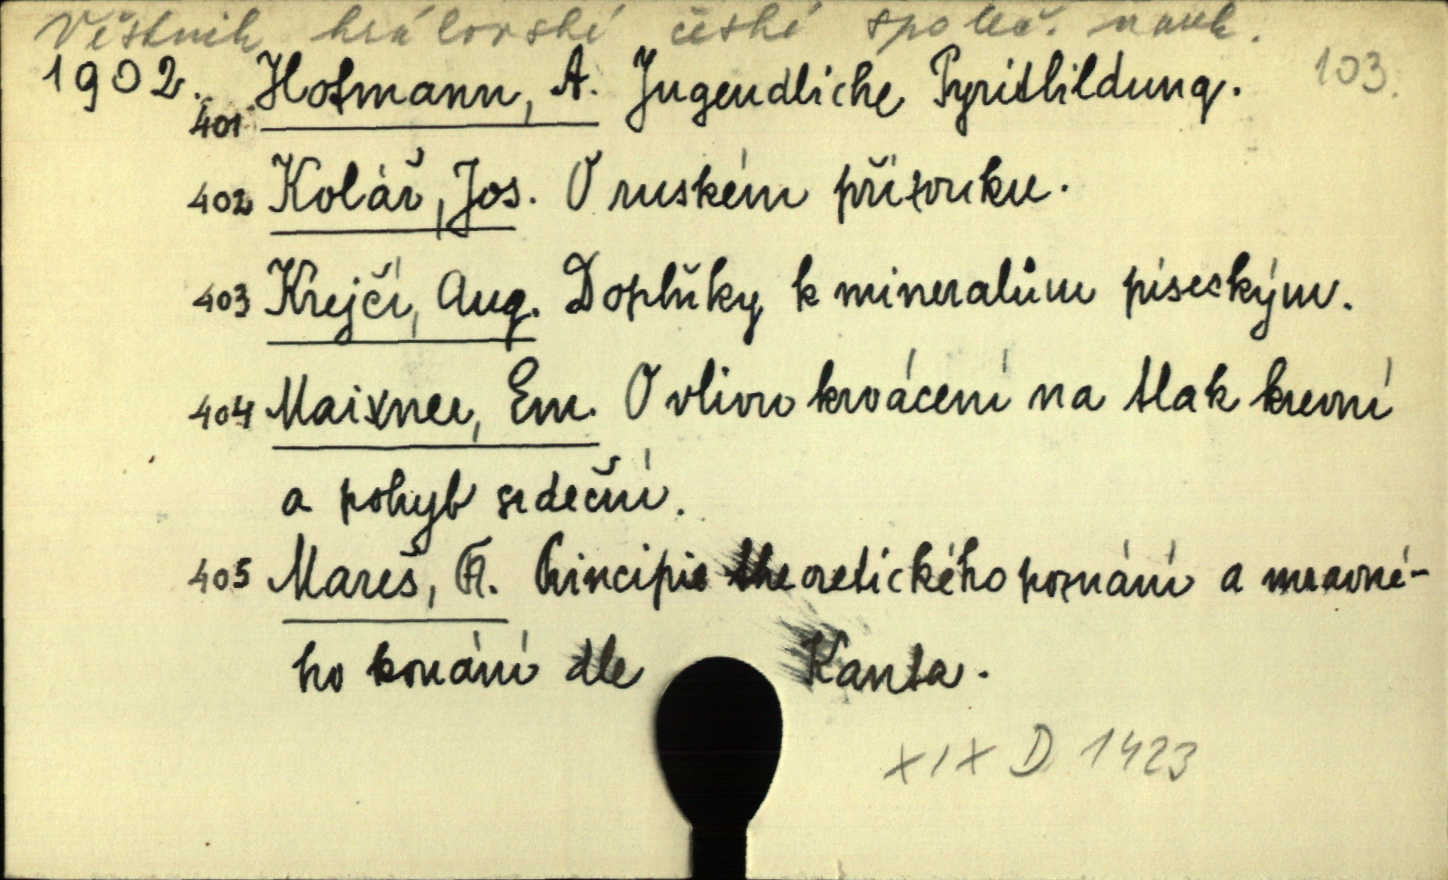 Věstnik královské české společ. nauk.
103.
1902. Hofmann, A. Jugendliche Pyritbildung.
401
402 Kolář, Jos. O ruském přízvuku.
403 Krejčí, Aug. Doplňky k mineralům píseckým.
404 Maixner, Em. O vlivu krvácení na tlak krevní
a pohyb srdeční.
405 Mareš, Fr. Principie theoretického poznání a mravné-
ho konání dle Kanta.
XIX D 1423